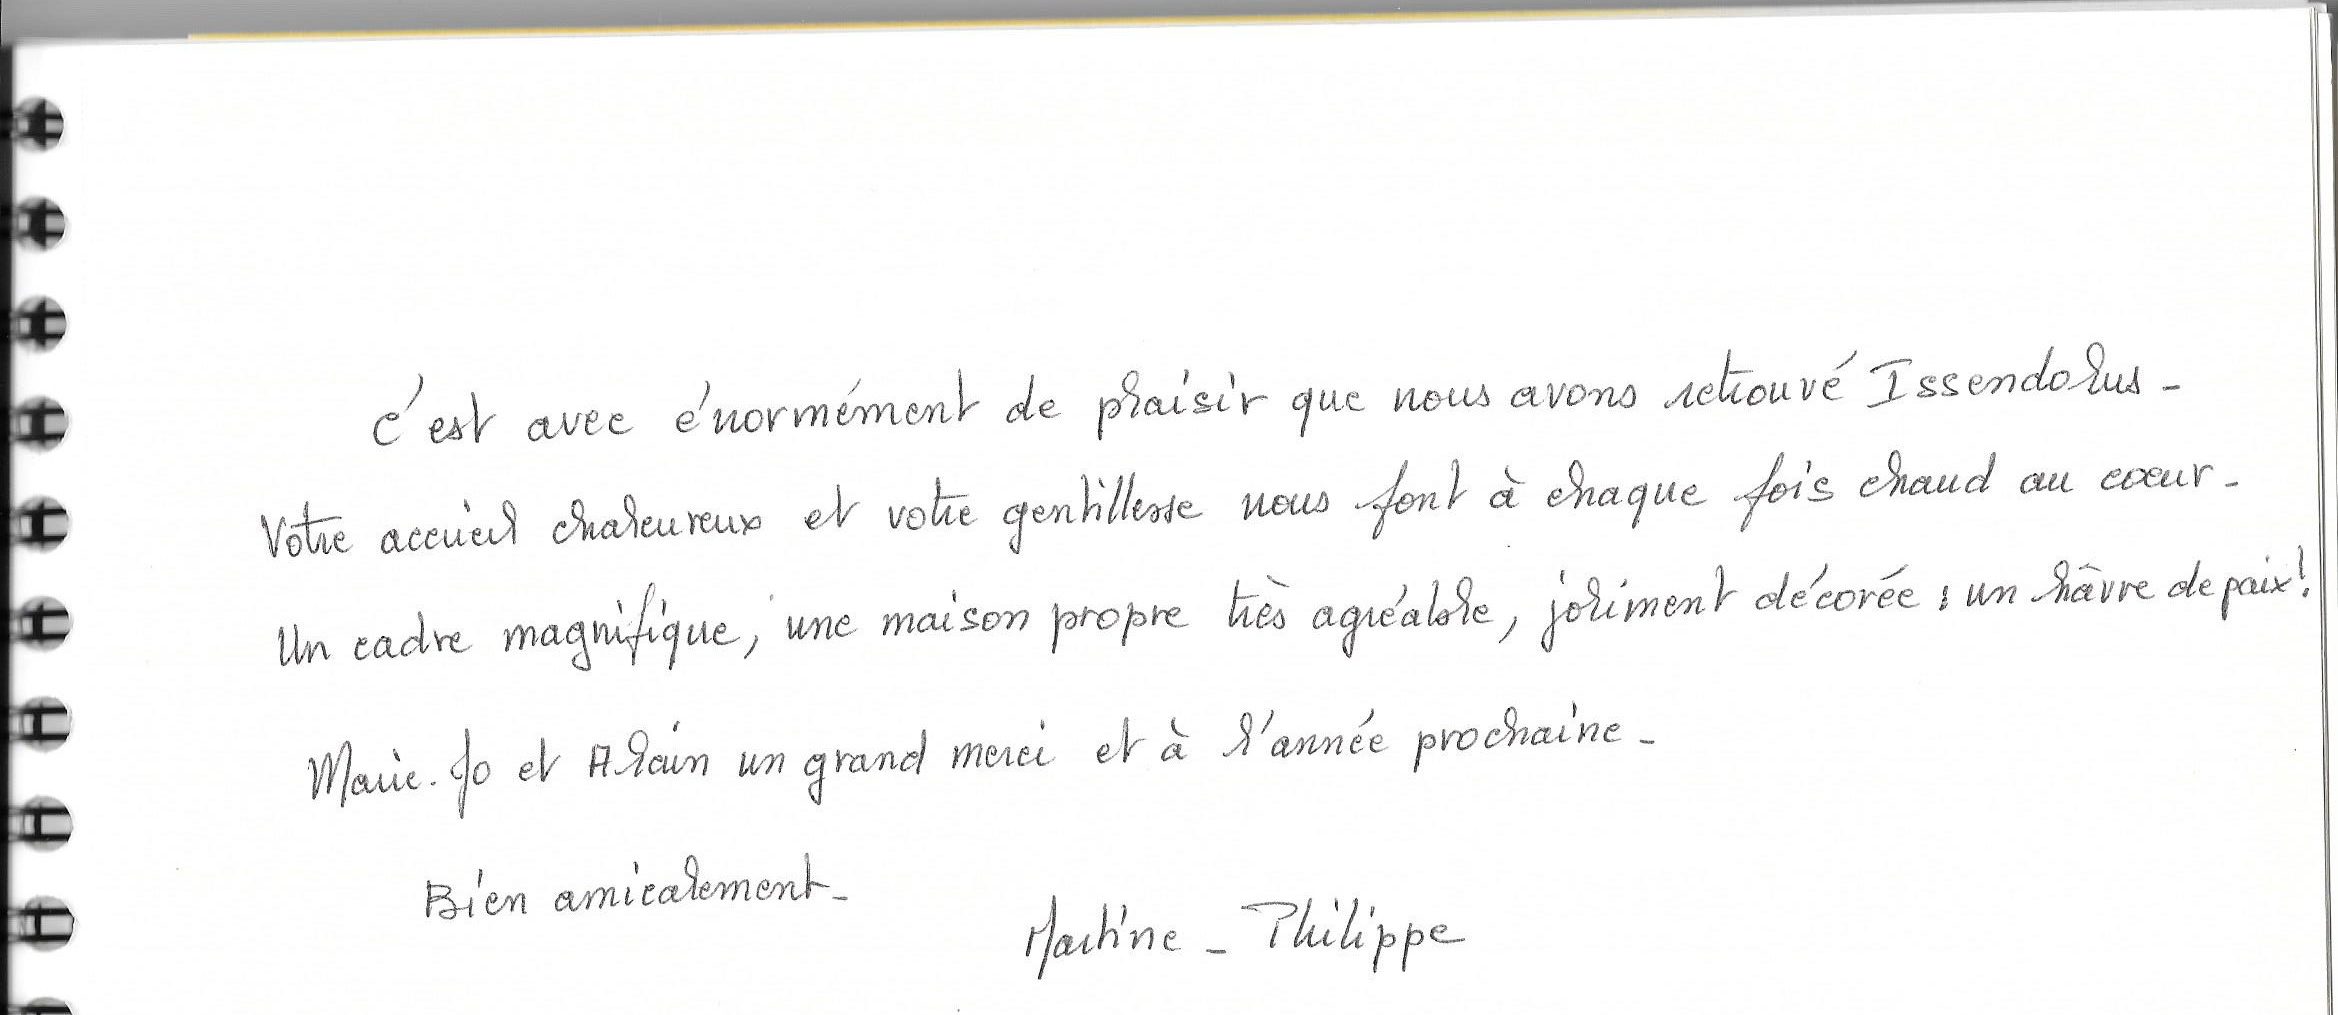 C'est avec énormément de plaisir que nous avons retrouvé Issendolus -
Votre accueil chaleureux et votre gentillesse nous font à chaque fois chaud au cœur -
Un cadre magnifique, une maison propre très agréable, joliment décorée : un hâvre de paix !
Marie-Jo et Alain un grand merci et à l'année prochaine -
Bien amicalement -
Martine - Philippe